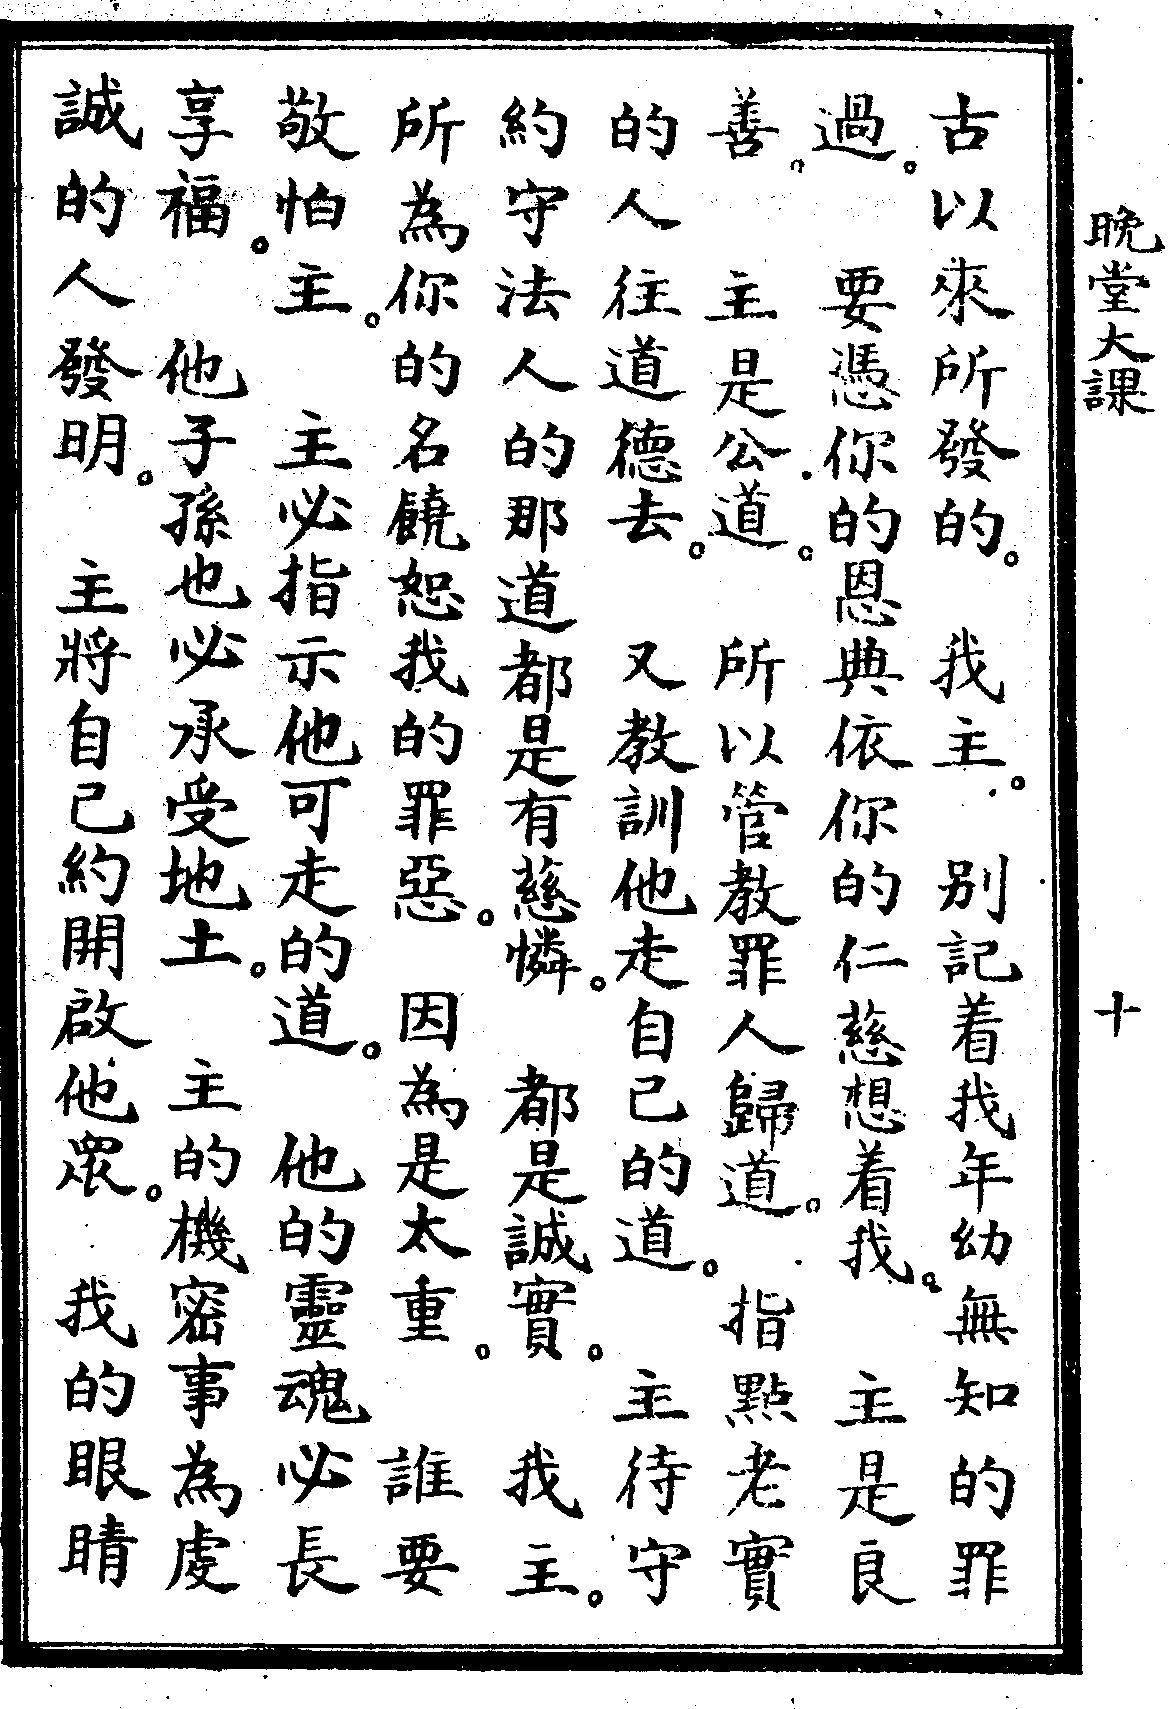 晚堂大課
十
古以來所發的。我主。別記着我年幼無知的罪
過。要憑你的恩典依你的仁慈想着我。主是良
善。主是公道。所以管教罪人歸道。指點老實
的人往道德去。又教訓他走自己的道。主待守
約守法人的那道都是有慈憐。都是誠實。我主。
所為你的名饒恕我的罪惡。因為是太重。誰要
敬怕主。主必指示他可走的道。他的靈魂必長
享福。他子孫也必承受地土。主的機密事為虔
誠的人發明。主將自己約開啟他眾。我的眼睛